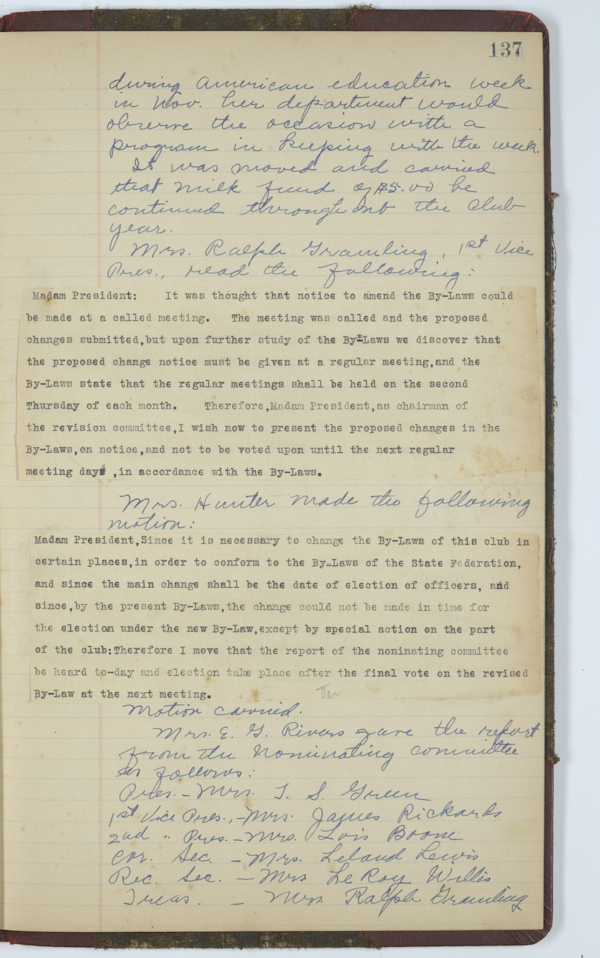 137
during American education week
in Nov. her department would
observe the occasion with a
program in keeping with the week.
It was moved and carried
that milk fund of $5.00 be
continued throughout the club
year.
Mrs. Ralph Gramling, 1st Vice
Pres., read the following:
Madam President: It was thought that notice to amend the By-Laws could
be made at a called meeting. The meeting was called and the proposed
changes submitted,but upon further study of the By-Laws we discover that
the proposed change notice must be given at a regular meeting,and the
By-Laws state that the regular meetings shall be held on the second
Thursday of each month. Therefore,Madam President,as chairman of
the revision committee,I wish now to present the proposed changes in the
By-Laws,on notice,and not to be voted upon until the next regular
meeting day ,in accordance with the By-Laws.
Mrs. Hunter made the following
motion:
Madam President,Since it is necessary to change the By-Laws of this club in
certain places,in order to conform to the By-Laws of the State Federation,
and since the main change shall be the date of election of officers, and
since,by the present By-Laws,the change could not be made in time for
the election under the new By-Law,except by special action on the part
of the club:Therefore I move that the report of the noninating committee
be heard to-day and election take place after the final vote on the revised
By-Law at the next meeting.
Motion carried.
Mrs. E. G. Rivers gave the report
from the nominating committee
as follows:
Pres. - Mrs. T. S. Green
1st Vice Pres., - Mrs. James Rickards
2nd " Pres. - Mrs. Lois Boone
Cor. Sec. - Mrs. Leland Lewis
Rec. Sec. - Mrs LeRoy Willis
Treas. - Mrs Ralph Gramling